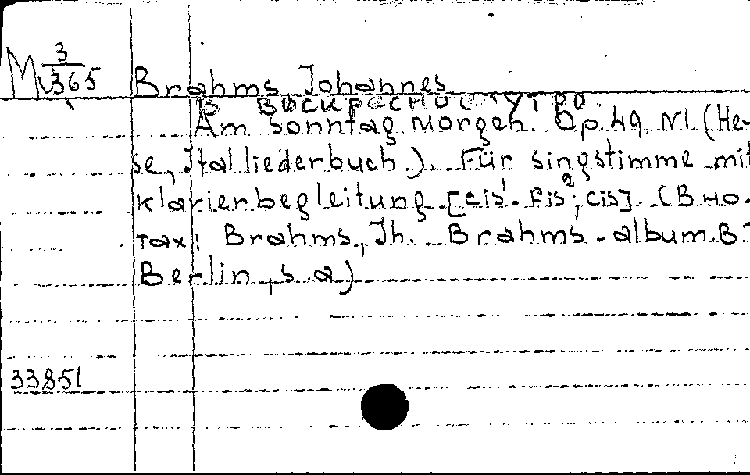 M 3/365
Brahms Johannes
В воскресное утро.
Am sonntag Morgen. Op. 49, N1. (Hey-
se, Ital liederbuch.). Für singstimme mit
klavierbegleitung [cis¹-fis², cis] (В но-
тах: Brahms, Jh. Brahms-album. B
Berlin, s. a)
33851